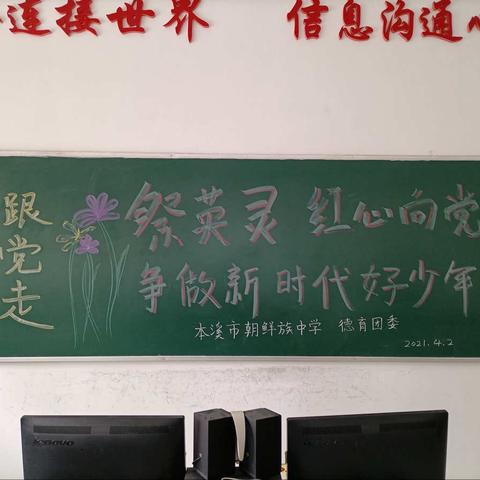 连接世界 信息沟通心
跟党走
祭英灵 红心向党
争做新时代好少年
本溪市朝鲜族中学 德育团委
2021.4.2
lenovo
lenovo